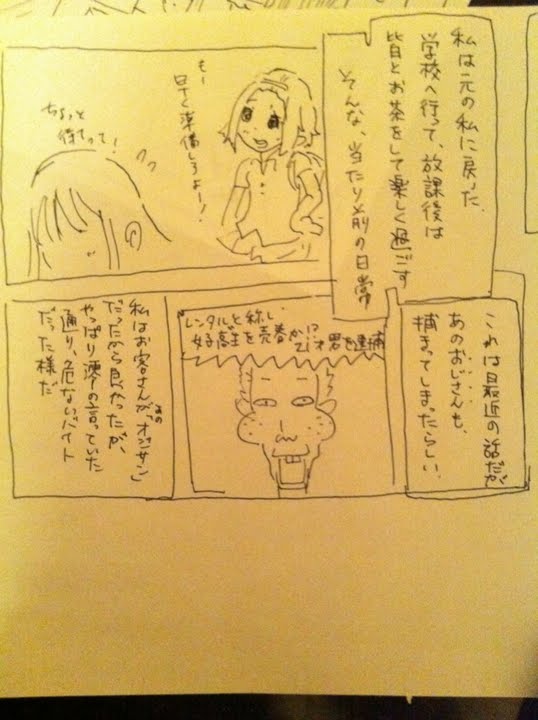 私は元の私に戻った.
学校へ行って、放課後は
皆とお茶をして楽しく過ごす
そんな、当たり前の日常
もー
早く準備しろよー!
ちょっと
待ってって!
これは最近の話だが
あのおじさんも、
捕まってしまったらしい.
レンタルと称し
女子高生を売春か!?
男を逮捕
私はお客さんが、あのオジサン
だったから良かったが、
やっぱり澪の言っていた
通り、危ないバイト
だった様だ